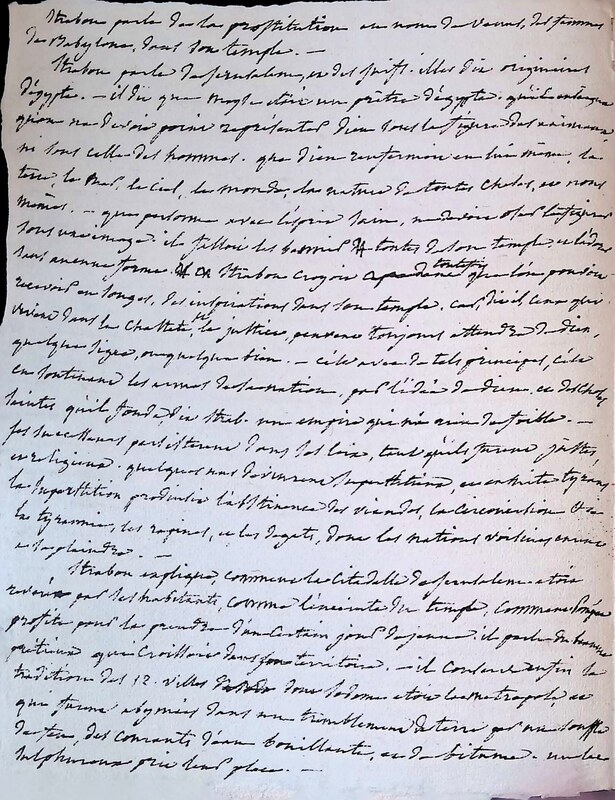 Strabon parle de la prostitution au nom de Venus, des femmes
de Babylone, dans son temple. —
Strabon parle de Jerusalem, et des juifs. illes dit originaires
d'égypte. — il dit que moyse etoit un prêtre d'égypte. qu'il enseigna
qu'on ne devoit point representer dieu sous la figure des animaux
ni sous celle des hommes. que dieu renfermoit en lui même, la
terre la mer, le ciel, le monde, la nature de toutes choses, et nous
mêmes. — que personne avec l'esprit sain, ne devoit oser le figurer
sous une image. il falloit les bannir toutes de son temple, et l'adorer
sans aucune forme. Strabon croyoit toutefois que l'on pouvoit
recevoir en songes, des inspirations dans son temple. car, dit il, ceux qui
vivent dans la chasteté, et la justice, peuvent toujours attendre de dieu,
quelque signe, ou quelque bien. — c'est avec de tels principes, c'est
en soutenant les armes de sa nation, par l'idée de dieu, et des choses
saintes qu'il fonda, dit Strab. un empire qui n'a rien de foible. —
ses successeurs persisterent dans ses loix, tant qu'ils furent justes,
et religieux. quelques uns devinrent superstitieux, et ensuite tyrans
la superstition produisit l'abstinence des viandes, la circoncision &a
la tyrannie, les rapines, et les degats, dont les nations voisines eurent
a se plaindre. —
Strabon explique, comment la citadelle de Jerusalem etoit
reverée par ses habitants, comme l'enceinte du temple, comment Pompée
profita pour la prendre d'un certain jour de jeune. il parle du baume
pretieux qui croissoit dans son territoire. — il conserve enfin la
tradition des 12. villes dont Sodome etoit la metropole, et
qui furent abymées dans un tremblement de terre par un souffle
de feu, des courants d'eau bouillante, et de bitume. un lac
sulphureux prit leur place. —